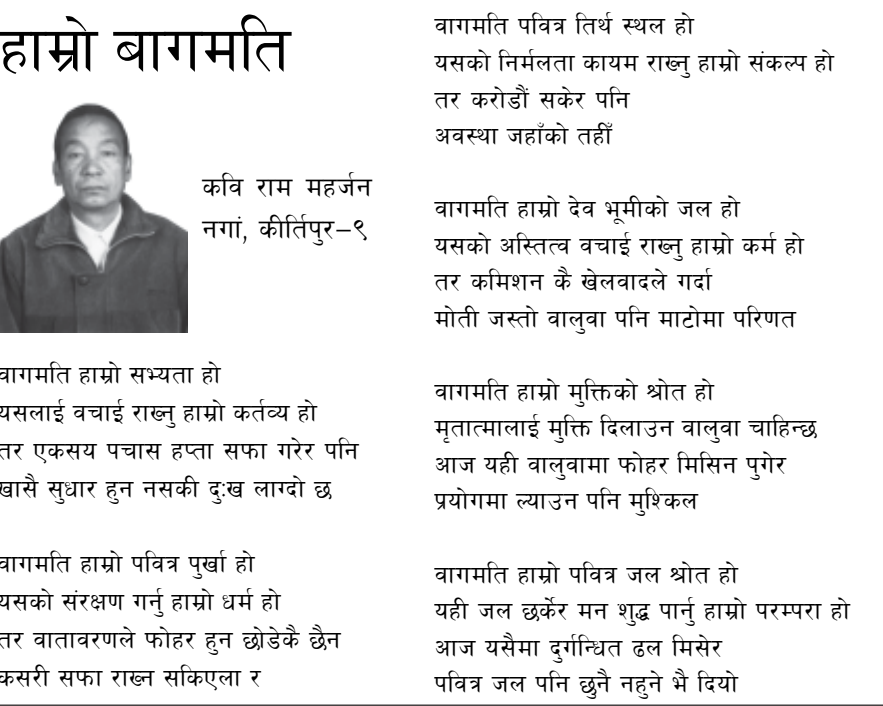 हाम्रो बागमति
कवि राम महर्जन
नगां, कीर्तिपुर–९
वागमति हाम्रो सभ्यता हो
यसलाई वचाई राख्नु हाम्रो कर्तव्य हो
तर एकसय पचास हप्ता सफा गरेर पनि
खासै सुधार हुन नसकी दुःख लाग्दो छ
वागमति हाम्रो पवित्र पुर्खा हो
यसको संरक्षण गर्नु हाम्रो धर्म हो
तर वातावरणले फोहर हुन छोडेकै छैन
कसरी सफा राख्न सकिएला र
वागमति पवित्र तिर्थ स्थल हो
यसको निर्मलता कायम राख्नु हाम्रो संकल्प हो
तर करोडौं सकेर पनि
अवस्था जहाँको तहीँ
वागमति हाम्रो देव भूमीको जल हो
यसको अस्तित्व वचाई राख्नु हाम्रो कर्म हो
तर कमिशन कै खेलवादले गर्दा
मोती जस्तो वालुवा पनि माटोमा परिणत
वागमति हाम्रो मुक्तिको श्रोत हो
मृतात्मालाई मुक्ति दिलाउन वालुवा चाहिन्छ
आज यही वालुवामा फोहर मिसिन पुगेर
प्रयोगमा ल्याउन पनि मुश्किल
वागमति हाम्रो पवित्र जल श्रोत हो
यही जल छर्केर मन शुद्ध पार्नु हाम्रो परम्परा हो
आज यसैमा दुर्गन्धित ढल मिसेर
पवित्र जल पनि छुनै नहुने भै दियो